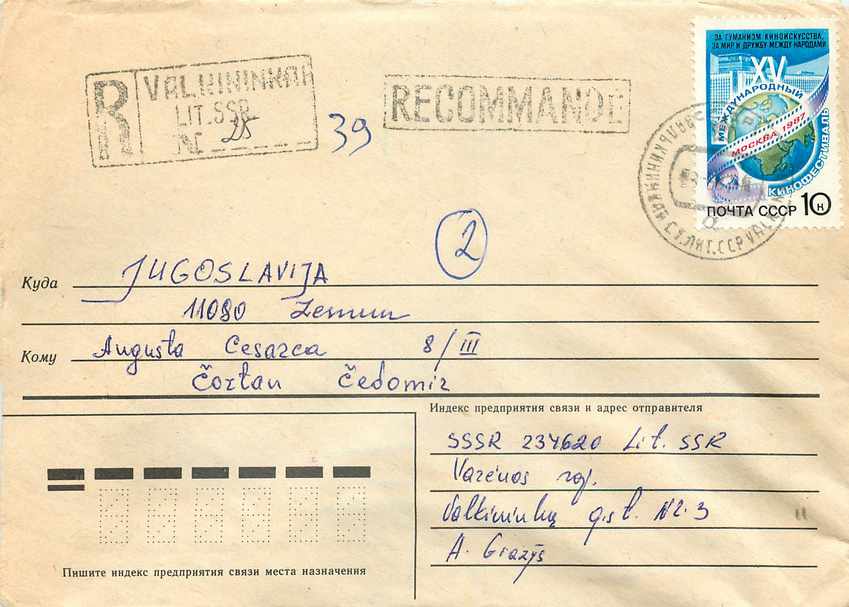 ЗА ГУМАНИЗМ КИНОИСКУССТВА,
ЗА МИР И ДРУЖБУ МЕЖДУ НАРОДАМИ
XV
МЕЖДУНАРОДНЫЙ
МОСКВА 1987
КИНОФЕСТИВАЛЬ
ПОЧТА СССР 10 к
R VALKININKAI
LIT. SSR
N 25
39
RECOMMANDE
ЛИТ.ССР
2
Куда JUGOSLAVIJA
11080 Zemun
Кому Augusta Cesarca 8/III
Čortan Čedomir
Индекс предприятия связи и адрес отправителя
SSSR 234620 Lit. SSR
Varėnos raj.
Valkininkų g.st. Nr. 3
A. Gražys
Пишите индекс предприятия связи места назначения